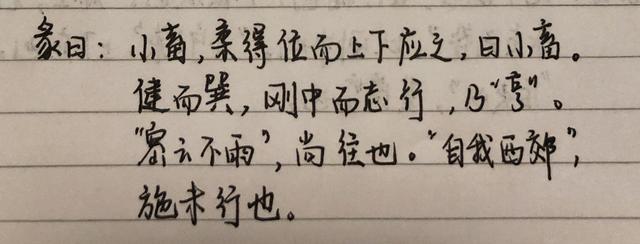 彖曰：小畜，柔得位而上下应之，曰小畜。
健而巽，刚中而志行，乃“亨”。
“密云不雨”，尚往也。“自我西郊”，
施未行也。